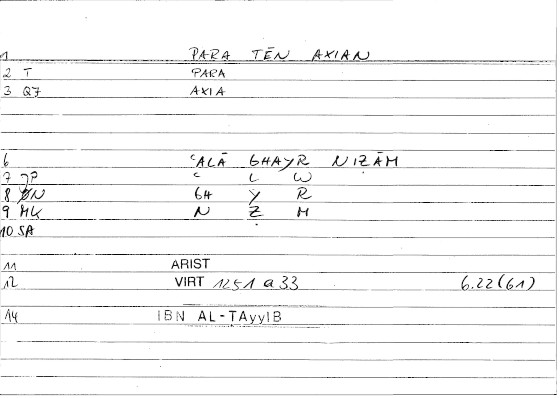 1 PARA TĒN AXIAN
2 T PARA
3 Q7 AXIA
6 ʿALĀ GHAYR NIẒĀM
7 JP ʿ L W
8 ØN GH Y R
9 MK N Ẓ M
10 SA
11 ARIST
12 VIRT 1251 a 33 6.22 (61)
14 IBN AL-TAyyIB